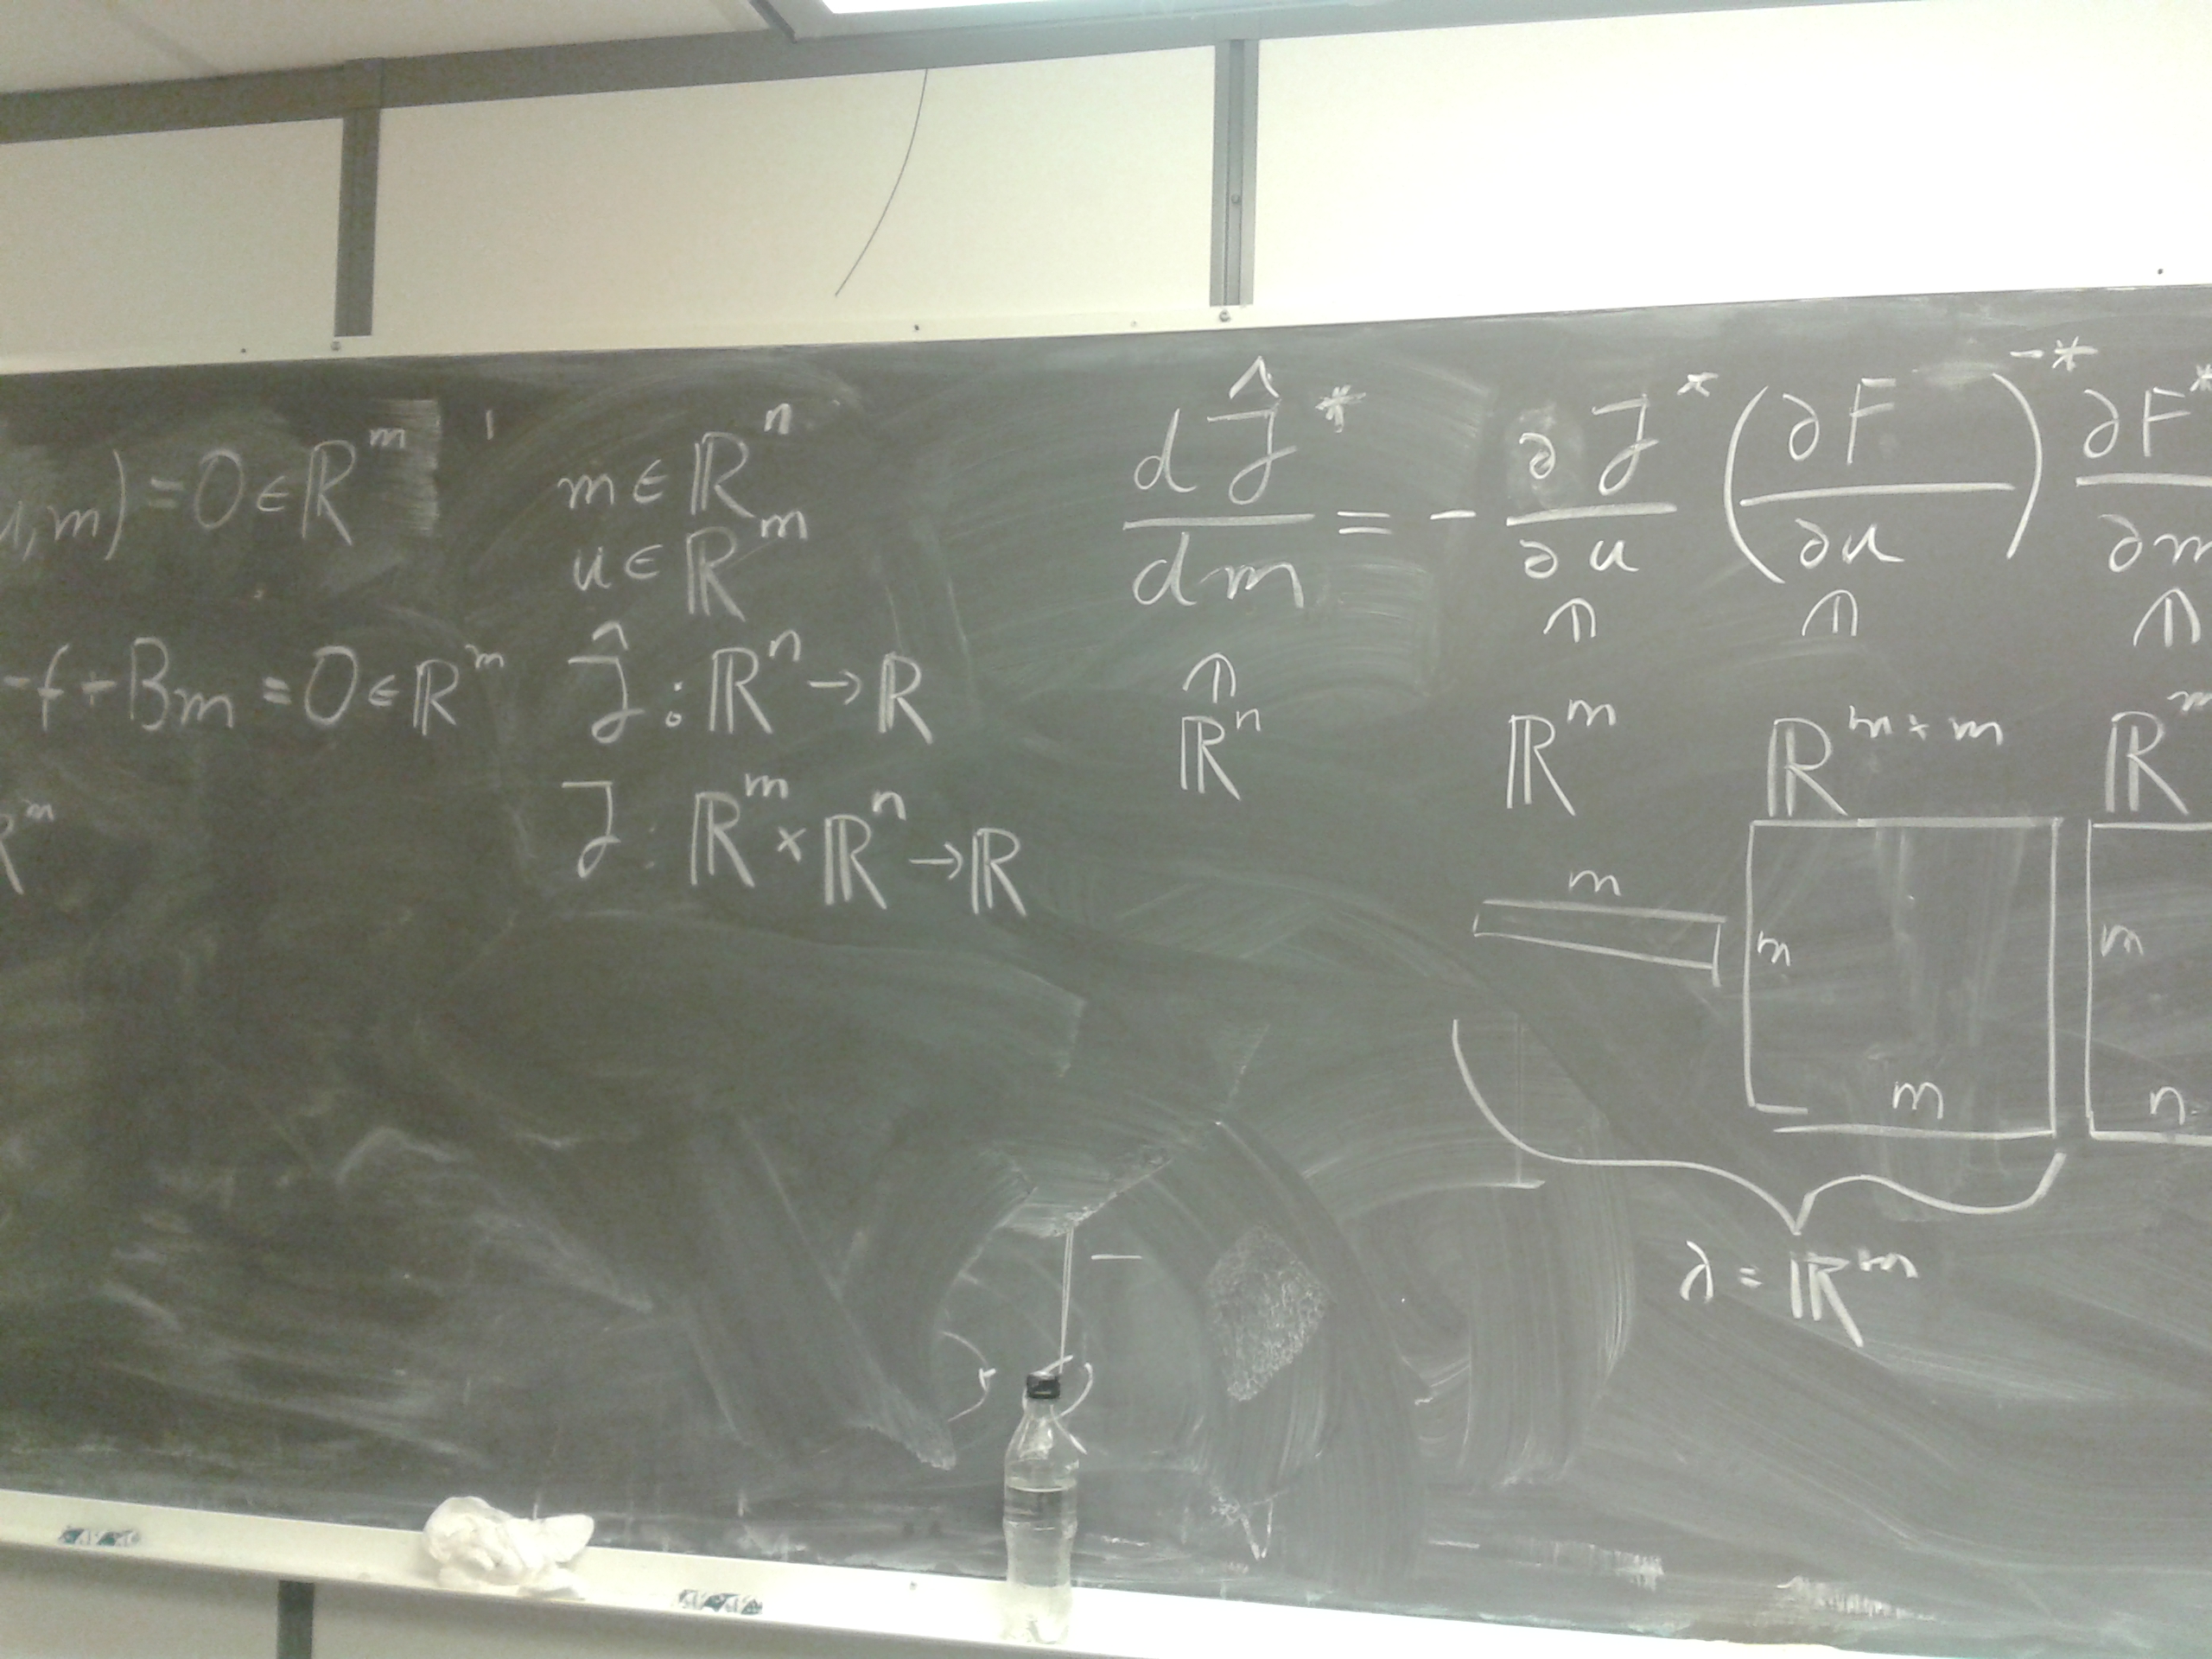 u,m) = 0 ∈ ℝ^m
-f + Bm = 0 ∈ ℝ^m
ℝ^m
m ∈ ℝ^n
u ∈ ℝ^m
Ĵ : ℝ^n → ℝ
J : ℝ^m × ℝ^n → ℝ
dĴ^*/dm = - ∂J^*/∂u (∂F/∂u)^{-*} ∂F^*/∂m
⋔ ⋔ ⋔ ⋔
ℝ^n ℝ^m ℝ^{m×m} ℝ^m
m
m m
m n
λ = ℝ^m